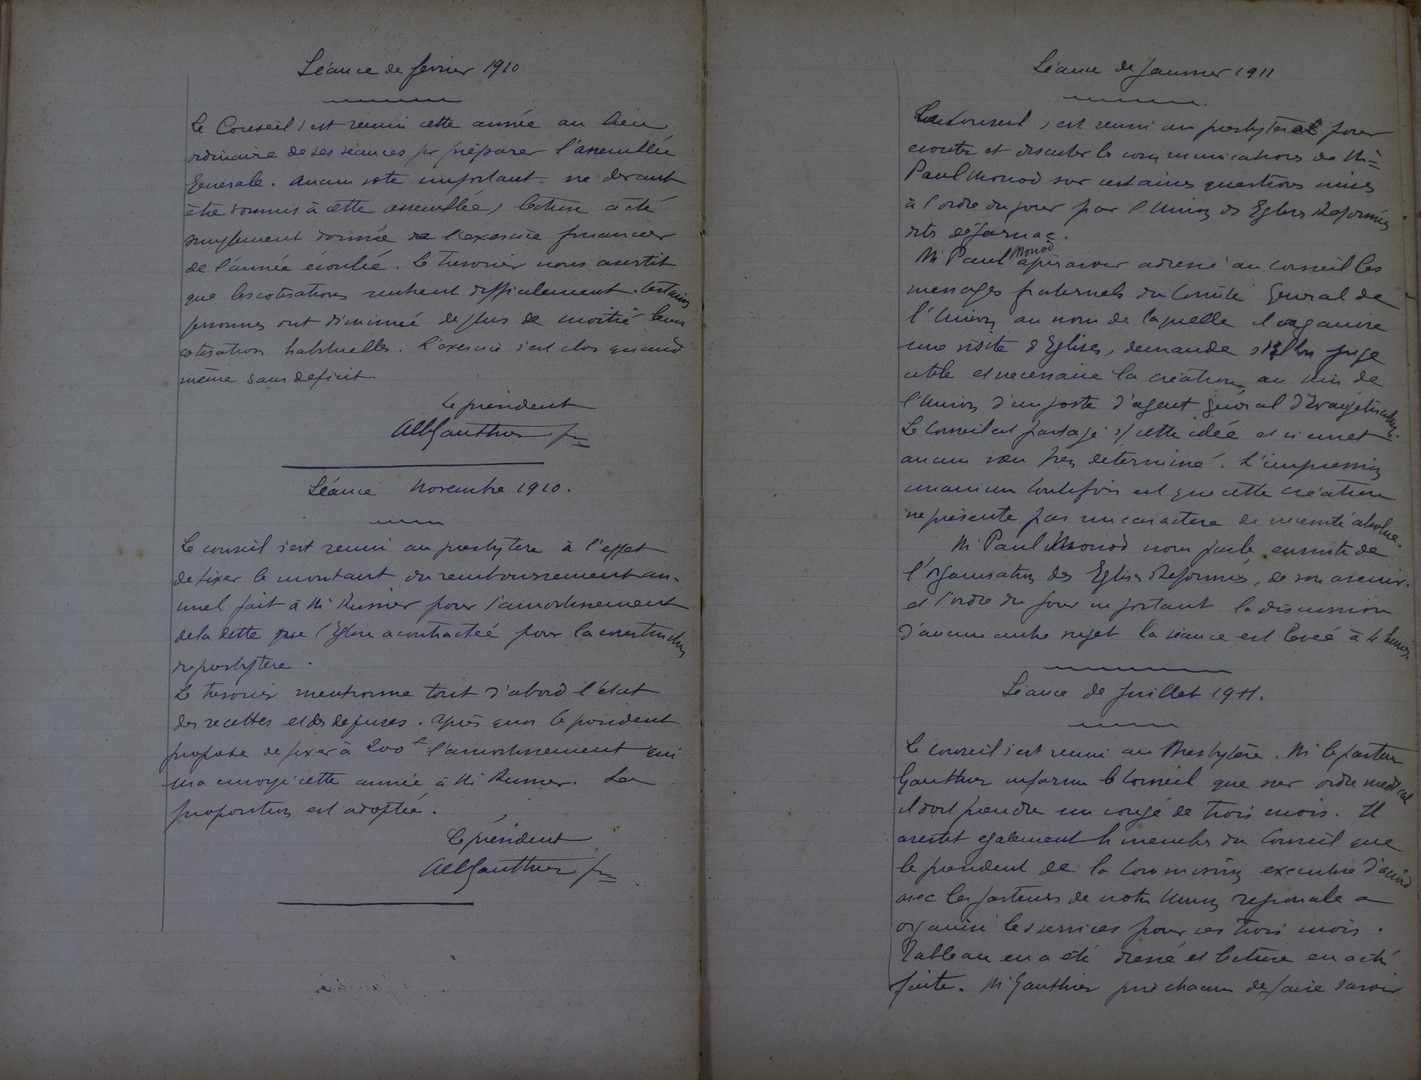 Séance de février 1910
Le Conseil s'est réuni cette année au lieu
ordinaire de ses séances pr préparer l'assemblée
générale. Aucun vote important ne devant
être soumis à cette assemblée, lecture a été
simplement donnée de l'exercice financier
de l'année écoulée. Le trésorier nous avertit
que les cotisations rentrent difficilement. Certaines
personnes ont diminué de plus de moitié leurs
cotisations habituelles. L'exercice s'est clos quand
même sans déficit.
Le président
Alb Gauthier
Séance novembre 1910.
Le conseil s'est réuni au presbytère à l'effet
de fixer le montant du remboursement an-
nuel fait à Mr pour l'amortissement
de la dette que l'Eglise a contractée pour la construction
du presbytère.
Le trésorier mentionne tout d'abord l'état
des recettes et des dépenses. Après quoi le président
propose de fixer à 200f l'amortissement qui
sera envoyé cette année à Mr La
proposition est adoptée.
Le président
Alb Gauthier
Séance de Janvier 1911
Le Conseil s'est réuni au presbytère pour
écouter et discuter les communications de Mr
Paul Monod sur certaines questions mises
à l'ordre du jour par l'Union des Eglises Réformées
dites de Jarnac.
Mr Paul Monod après avoir adressé au Conseil les
messages fraternels du Comité Général de
l'Union au nom de laquelle il organise
une visite d'Eglises, demande si l'on juge
utile et nécessaire la création, au sein de
l'Union d'un poste d'agent général d'Evangélisation.
Le Conseil est partagé s/ cette idée et n'émet
aucun vœu bien déterminé. L'impression
unanime toutefois est que cette création
ne présente pas un caractère de nécessité absolue.
Mr Paul Monod nous parle ensuite de
l'organisation des Eglises Réformées, de son avenir.
et l'ordre du jour ne portant la discussion
d'aucun autre sujet la séance est levée à 4 heures.
Séance de Juillet 1911.
Le Conseil s'est réuni au Presbytère. Mr le pasteur
Gauthier informe le Conseil que sur ordre médical
il doit prendre un congé de trois mois. Il
avertit également les membres du Conseil que
le président de la Commission exécutive d'accord
avec les pasteurs de notre Union régionale a
organisé les services pour ces trois mois.
Tableau en a été dressé et lecture en a été
faite. Mr Gauthier prie chacun de faire savoir